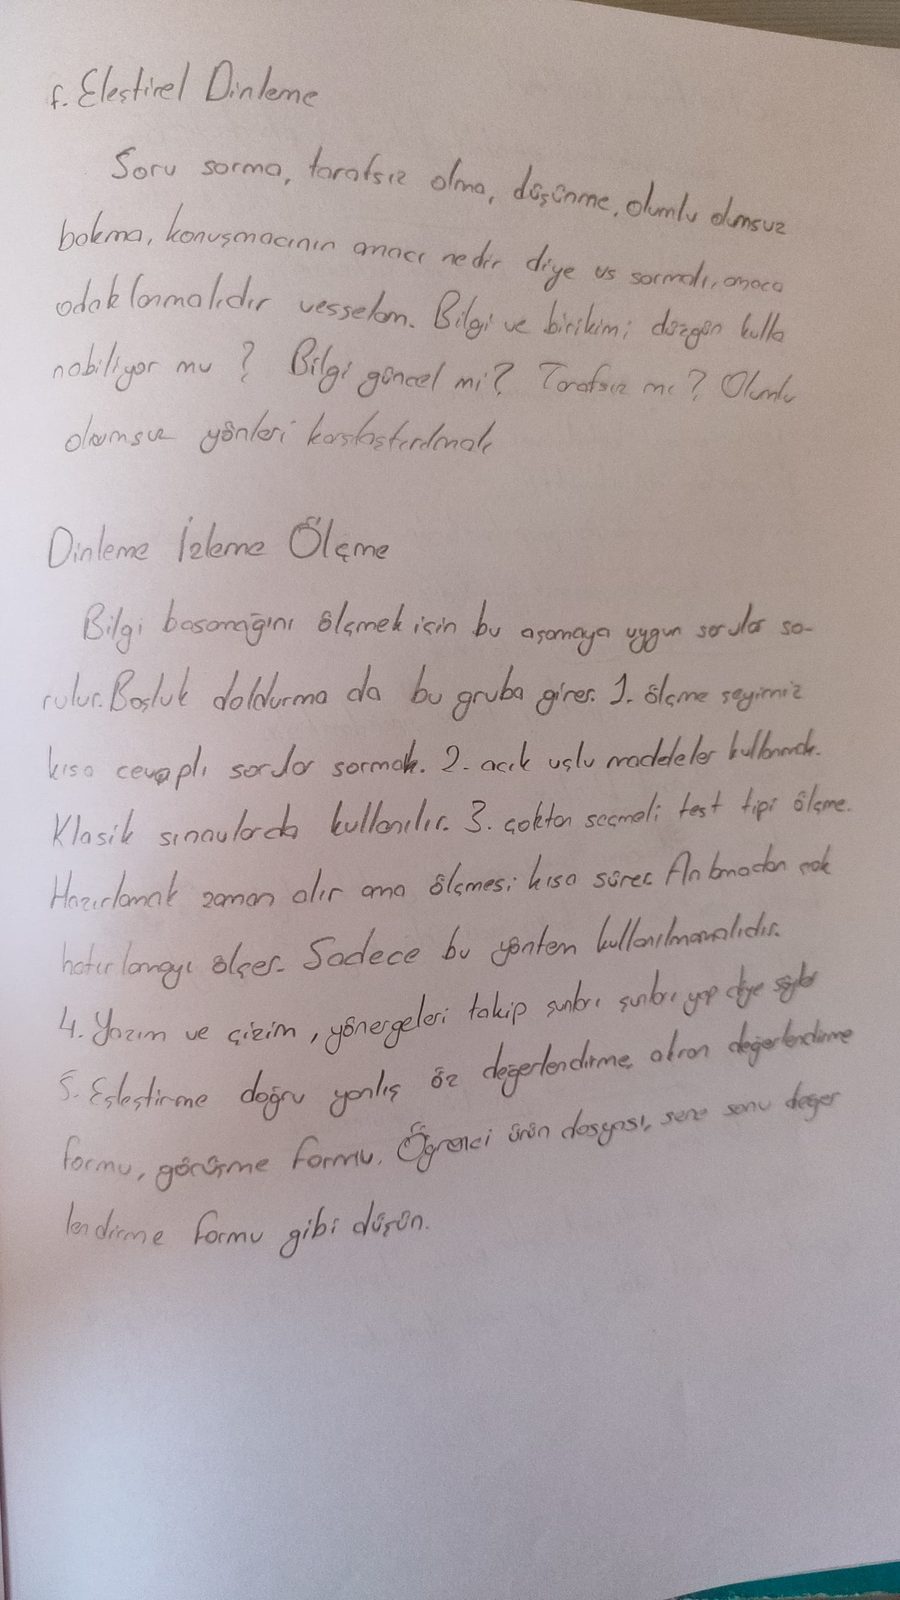 f. Eleştirel Dinleme
Soru sorma, tarafsız olma, düşünme, olumlu olumsuz
bakma, konuşmacının amacı nedir diye vs sormalı, amaca
odaklanmalıdır vesselam. Bilgi ve birikimi düzgün kulla
nabiliyor mu? Bilgi güncel mi? Tarafsız mı? Olumlu
olumsuz yönleri karşılaştırılmalı
Dinleme İzleme Ölçme
Bilgi basamağını ölçmek için bu aşamaya uygun sorular so-
rulur. Boşluk doldurma da bu gruba girer. 1. ölçme şeyimiz
kısa cevaplı sorular sormak. 2. açık uçlu maddeler kullanmak.
Klasik sınavlarda kullanılır. 3. çoktan seçmeli test tipi ölçme.
Hazırlamak zaman alır ama ölçmesi kısa sürer. Anlamadan çok
hatırlamayı ölçer. Sadece bu yöntem kullanılmamalıdır.
4. Yazım ve çizim, yönergeleri takip şunları şunları yap diye
5. Eşleştirme doğru yanlış öz değerlendirme, akran değerlendirme
formu, görüşme formu. Öğrenci ürün dosyası, sene sonu değer
lendirme formu gibi düşün.